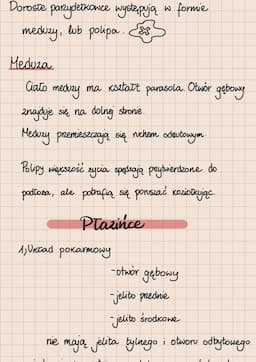 Dorosłe parzydełkowce występują w formie
meduzy, lub polipa.
Meduza
Ciało meduzy ma kształt parasola. Otwór gębowy
znajduje się na dolnej stronie.
Meduzy przemieszczają się ruchem odrzutowym
Polipy większość życia spędzają przytwierdzone do
podłoża, ale potrafią się poruszać koziołkując.
Płazińce
1) Układ pokarmowy
-otwór gębowy
-jelito przednie
-jelito środkowe
nie mają jelita tylnego i otworu odbytowego